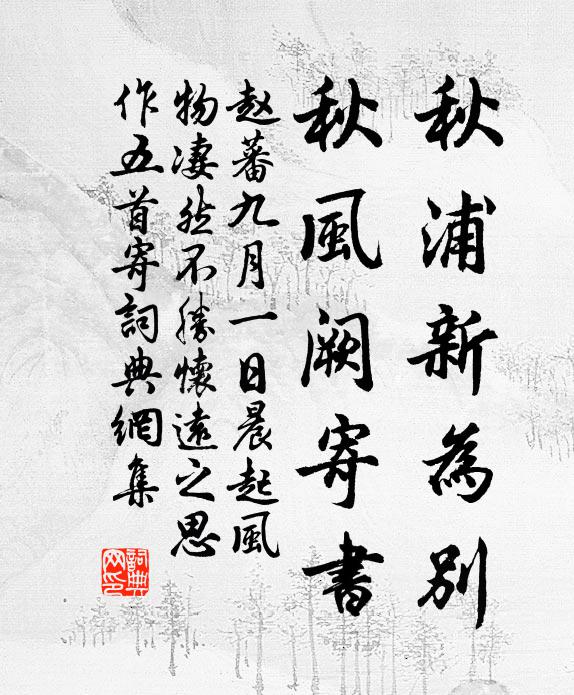 秋浦新為別
秋風闕寄書
赵蕃九月一日晨起風
物淒然不勝懷遠之思
作五首寄詞典網集
詞典网印